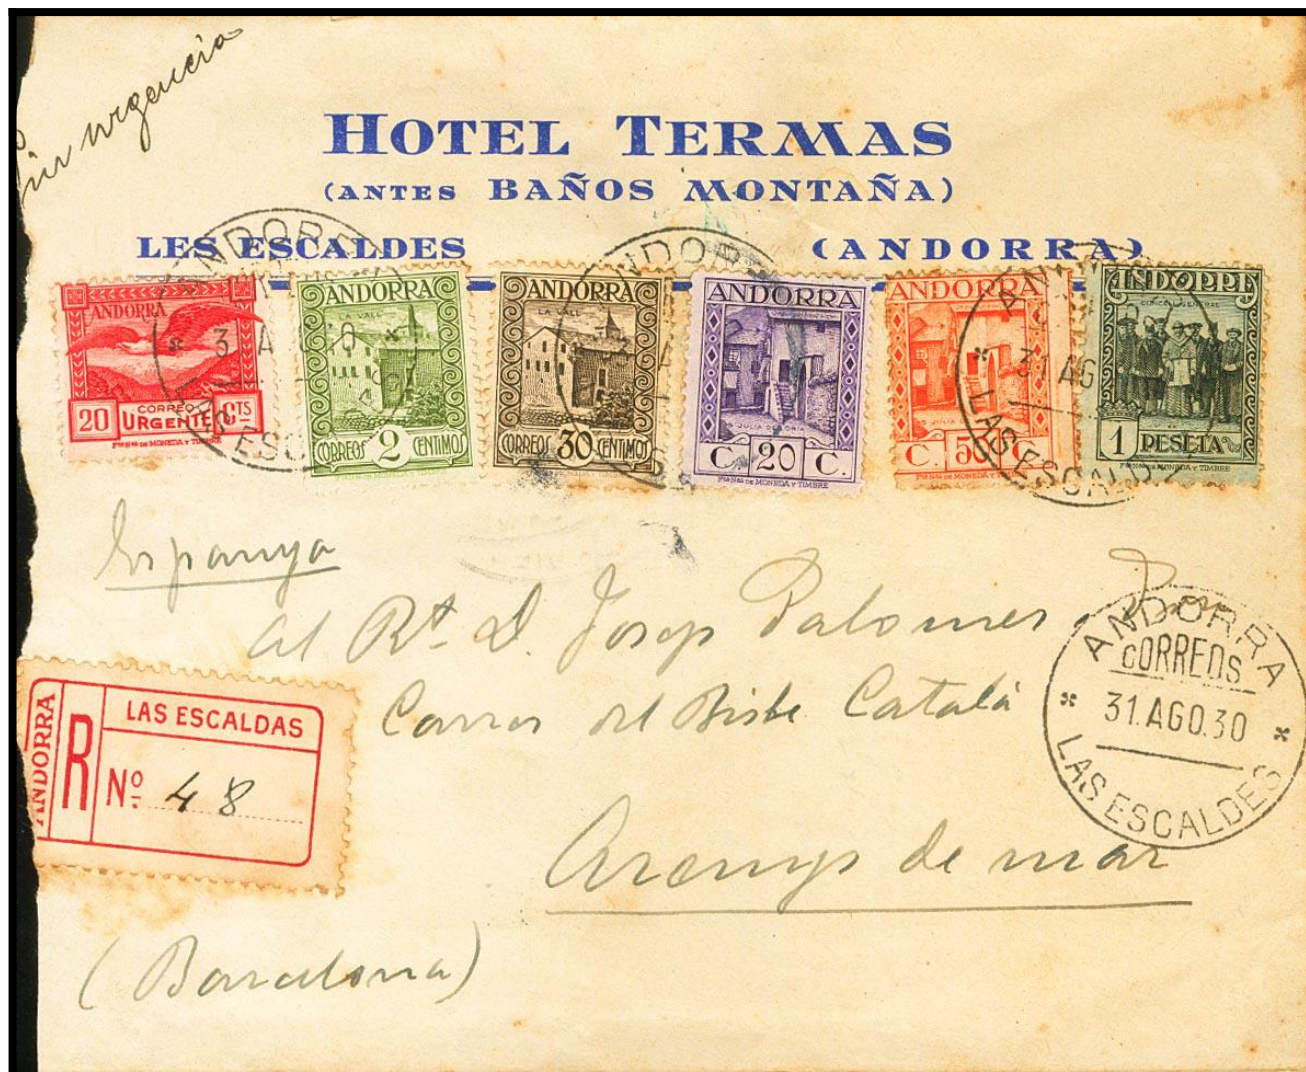 Sin urgencia
HOTEL TERMAS
(ANTES BAÑOS MONTAÑA)
LES ESCALDES (ANDORRA)
ANDORRA
CORREO
20 URGENTE CTS
FCA NAL DE MONEDA Y TIMBRE
ANDORRA
LA VALL
CORREOS 2 CENTIMOS
ANDORRA
LA VALL
CORREOS 30 CENTIMOS
ANDORRA
JULIA DE LORIA
C. 20 C.
FCA NAL DE MONEDA Y TIMBRE
ANDORRA
C. 50 C.
FCA NAL DE MONEDA Y TIMBRE
ANDORRA
CONCELL GENERAL
1 PESETA
FCA NAL DE MONEDA Y TIMBRE
Espanya
al Rt. D. Josep Palomer
Carrer del Bisbe Català
Arenys de mar
(Barcelona)
ANDORRA
R
LAS ESCALDAS
Nº 48
ANDORRA
CORREOS
31.AGO.30
LAS ESCALDES